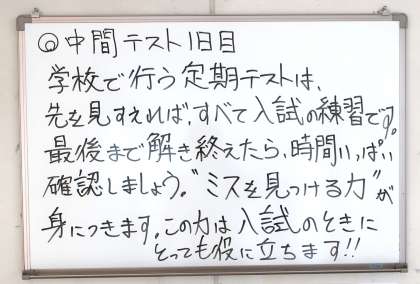 ◎中間テスト1日目
学校で行う定期テストは、
先を見すえれば、すべて入試の練習です。
最後まで解き終えたら、時間いっぱい
確認しましょう。"ミスを見つける力"が
身につきます。この力は入試のときに
とっても役に立ちます!!